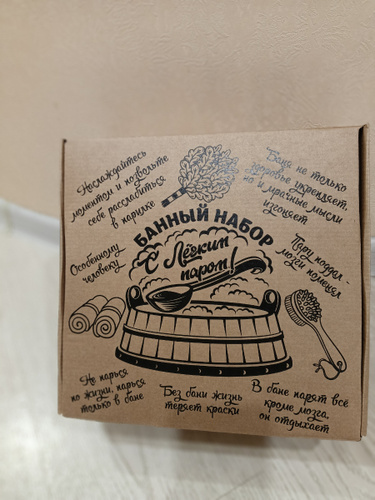 Наслаждайтесь
моментом и позвольте
себе расслабиться
в парилке
Баня не только
здоровье укрепляет,
но и мрачные мысли
изгоняет
БАННЫЙ НАБОР
С Лёгким
паром!
Особенному
человеку
Пару поддал -
мозги поменял
Не парься
по жизни, парься
только в бане
Без бани жизнь
теряет краски
В бане парят всё
кроме мозга,
он отдыхает